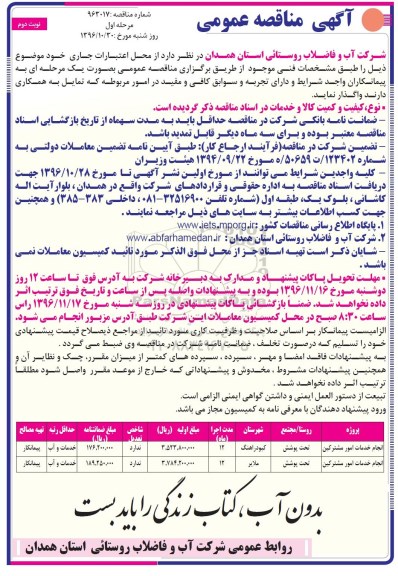 آگهی مناقصه عمومی
شماره مناقصه: ۱۷-۹۶۳
مرحله اول
روز شنبه مورخ: ۱۳۹۶/۱۰/۳۰
نوبت دوم
شرکت آب و فاضلاب روستائی استان همدان در نظر دارد از محل اعتبارات جاری خود موضوع
ذیل را طبق مشخصات فنی موجود از طریق برگزاری مناقصه عمومی بصورت یک مرحله ای به
پیمانکاران واجد شرایط و دارای تجربه و سوابق کافی و مفید در امور مربوطه که تمایل به همکاری
دارند واگذار نماید.
• نوع،کیفیت و کمیت کالا و خدمات در اسناد مناقصه ذکر گردیده است.
- ضمانت نامه بانکی شرکت در مناقصه حداقل باید به مدت سه ماه از تاریخ بازگشایی اسناد
مناقصه معتبر بوده و برای سه ماه دیگر قابل تمدید باشد.
- تضمین شرکت در مناقصه(فرآیند ارجاع کار): طبق آیین نامه تضمین معاملات دولتی به
شماره ۱۲۳۴۰۲/ت ۵۰۶۵۹ه مورخ ۱۳۹۴/۰۹/۲۲ هیئت وزیران
- کلیه واجدین شرایط می توانند از مورخ اولین نشر آگهی تا مورخ ۱۳۹۶/۱۰/۲۸ جهت
دریافت اسناد مناقصه به اداره حقوقی و قراردادهای شرکت واقع در همدان ، بلوار آیت اله
کاشانی ، بلوک یک، طبقه اول (شماره تلفن ۳۲۵۱۶۹۰۰-۰۸۱ داخلی ۳۸۳-۳۸۵) و همچنین
جهت کسب اطلاعات بیشتر به سایت های ذیل مراجعه نمایند .
۱. پایگاه اطلاع رسانی مناقصات کشور: www.iets.mporg.ir
۲. شرکت آب و فاضلاب روستائی استان همدان : www.abfarhamedan.ir
- شایان ذکر است تهیه اسناد جز از محل فوق الذکر مورد تائید کمیسیون معاملات نمی
باشد .
• مهلت تحویل پاکات پیشنهاد و مدارک به دبیرخانه شرکت به آدرس فوق تا ساعت ۱۲ روز
دوشنبه مورخ ۱۳۹۶/۱۱/۱۶ بوده و به پیشنهادات واصله پس از ساعت و تاریخ فوق ترتیب اثر
داده نخواهد شد. ضمنا بازگشائی پاکات پیشنهادی در روز سه شنبه مورخ ۱۳۹۶/۱۱/۱۷ راس
ساعت ۸:۳۰ صبح در محل کمیسیون معاملات این شرکت طبق آدرس مزبور انجام می شود.
الزامیست پیمانکار بر اساس صلاحیت و ظرفیت کاری مورد تائید از مراجع ذیصلاح قیمت پیشنهادی
خود را تسلیم که درصورت تخلف ، ضمانت نامه شرکت در مناقصه وی ضبط می گردد .
به پیشنهادات فاقد امضا و مهر ، سپرده ، سپرده های کمتر از میزان مقرر، چک و نظایر آن و
همچنین پیشنهادات مشروط ، مخدوش و پیشنهاداتی که خارج از موعد مقرر واصل شود مطلقا
ترتیب اثر داده نخواهد شد .
تبعیت از دستور العمل ایمنی و داشتن گواهی ایمنی الزامی است.
ورود پیشنهاد دهندگان با معرفی نامه به کمیسیون مجاز می باشد.
پروژه روستا/مجتمع شهرستان مدت اجرا (ماه) مبلغ اولیه (ریال) شاخص تعدیل مبلغ ضمانتنامه (ریال) حداقل رتبه تهیه مصالح
انجام خدمات امور مشترکین تحت پوشش کبودراهنگ ۱۲ ۳،۵۲۳،۸۰۰،۰۰۰ ندارد ۱۷۶،۲۰۰،۰۰۰ خدمات و آب پیمانکار
انجام خدمات امور مشترکین تحت پوشش ملایر ۱۲ ۳،۷۸۴،۲۰۰،۰۰۰ ندارد ۱۸۹،۲۵۰،۰۰۰ خدمات و آب پیمانکار
بدون آب، کتاب زندگی را باید بست
روابط عمومی شرکت آب و فاضلاب روستائی استان همدان